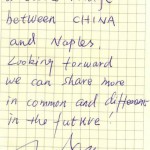 between CHINA
and Naples.
Looking forward
we can share more
in common and different
in the future!